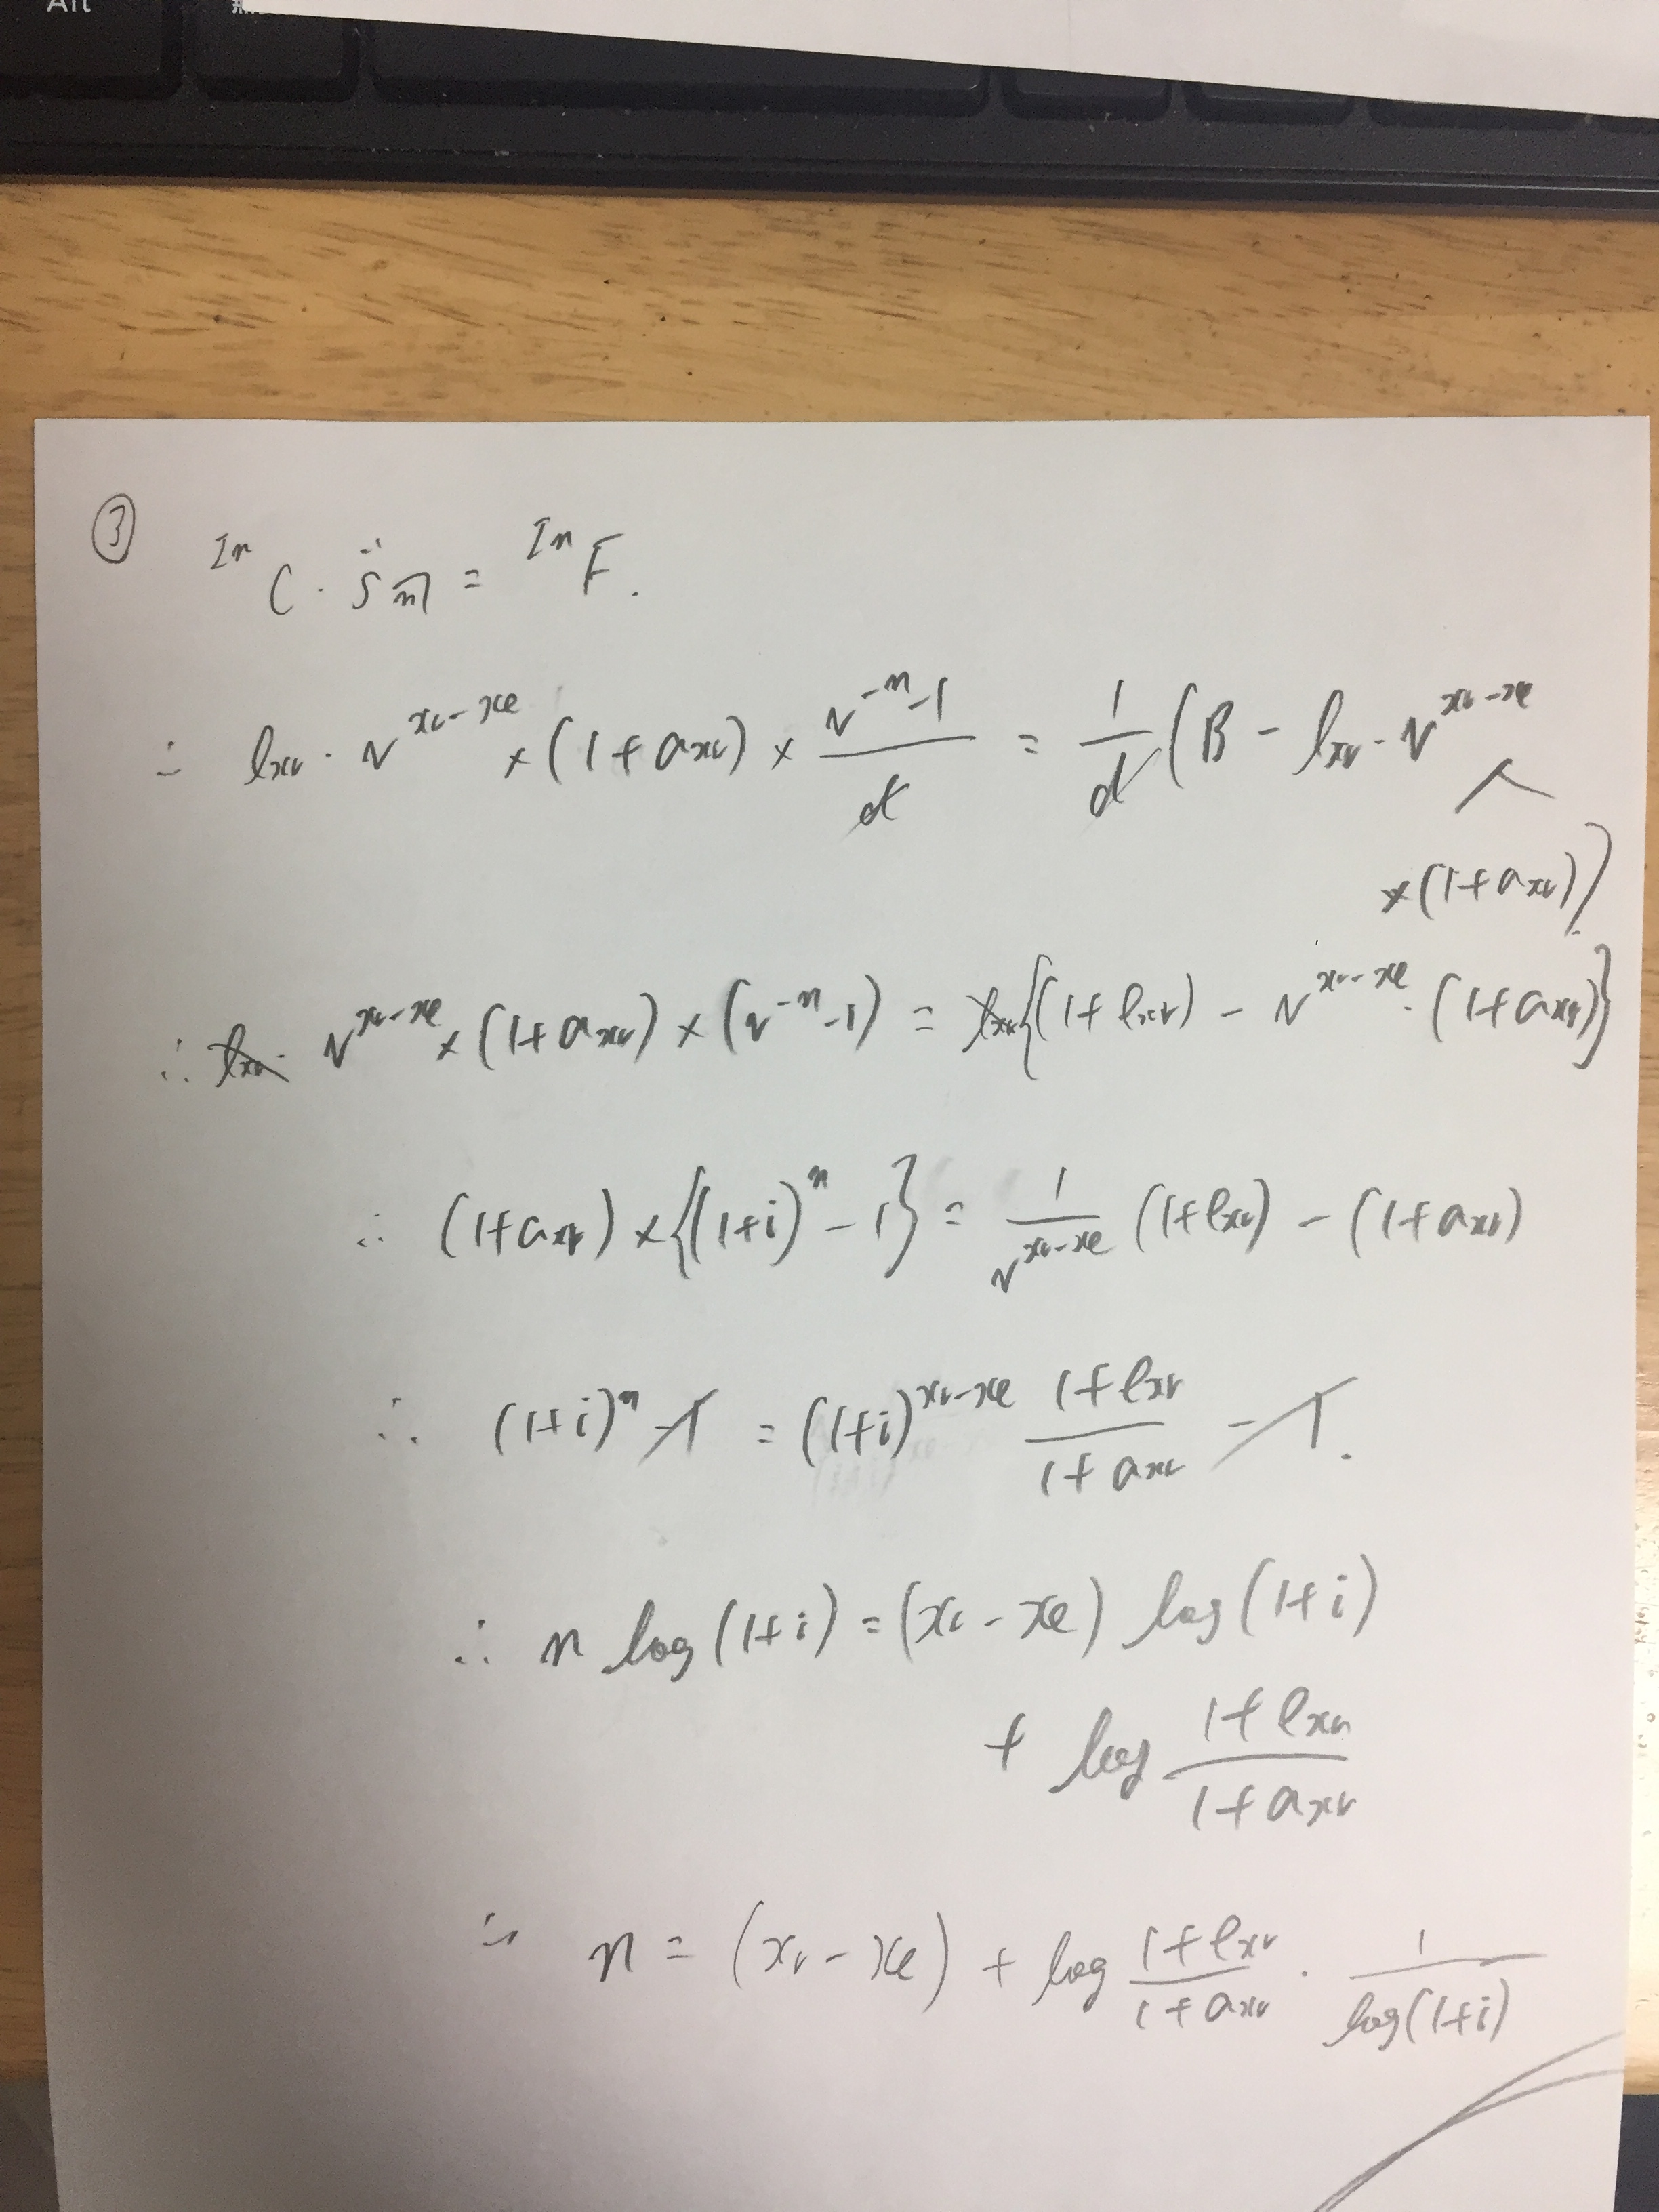 Alt
③ ^{In}C · s̈_{n⌉} = ^{In}F.
∴ l_{xr} · v^{xr-xe} × (1+a_{xr}) × \frac{v^{-n}-1}{d} = \frac{1}{d}(B - l_{xr} · v^{xr-xe}
×(1+a_{xr}))
∴ l_{xr} · v^{xr-xe} × (1+a_{xr}) × (v^{-n}-1) = l_{xr}{(1+e_{xr}) - v^{xr-xe} · (1+a_{xr})}
∴ (1+a_{xr}) × {(1+i)^n - 1} = \frac{1}{v^{xr-xe}} (1+e_{xr}) - (1+a_{xr})
∴ (1+i)^n - 1 = (1+i)^{xr-xe} \frac{1+e_{xr}}{1+a_{xr}} - 1.
∴ n log(1+i) = (xr - xe) log(1+i)
+ log \frac{1+e_{xr}}{1+a_{xr}}
∴ n = (xr - xe) + log \frac{1+e_{xr}}{1+a_{xr}} · \frac{1}{log(1+i)}